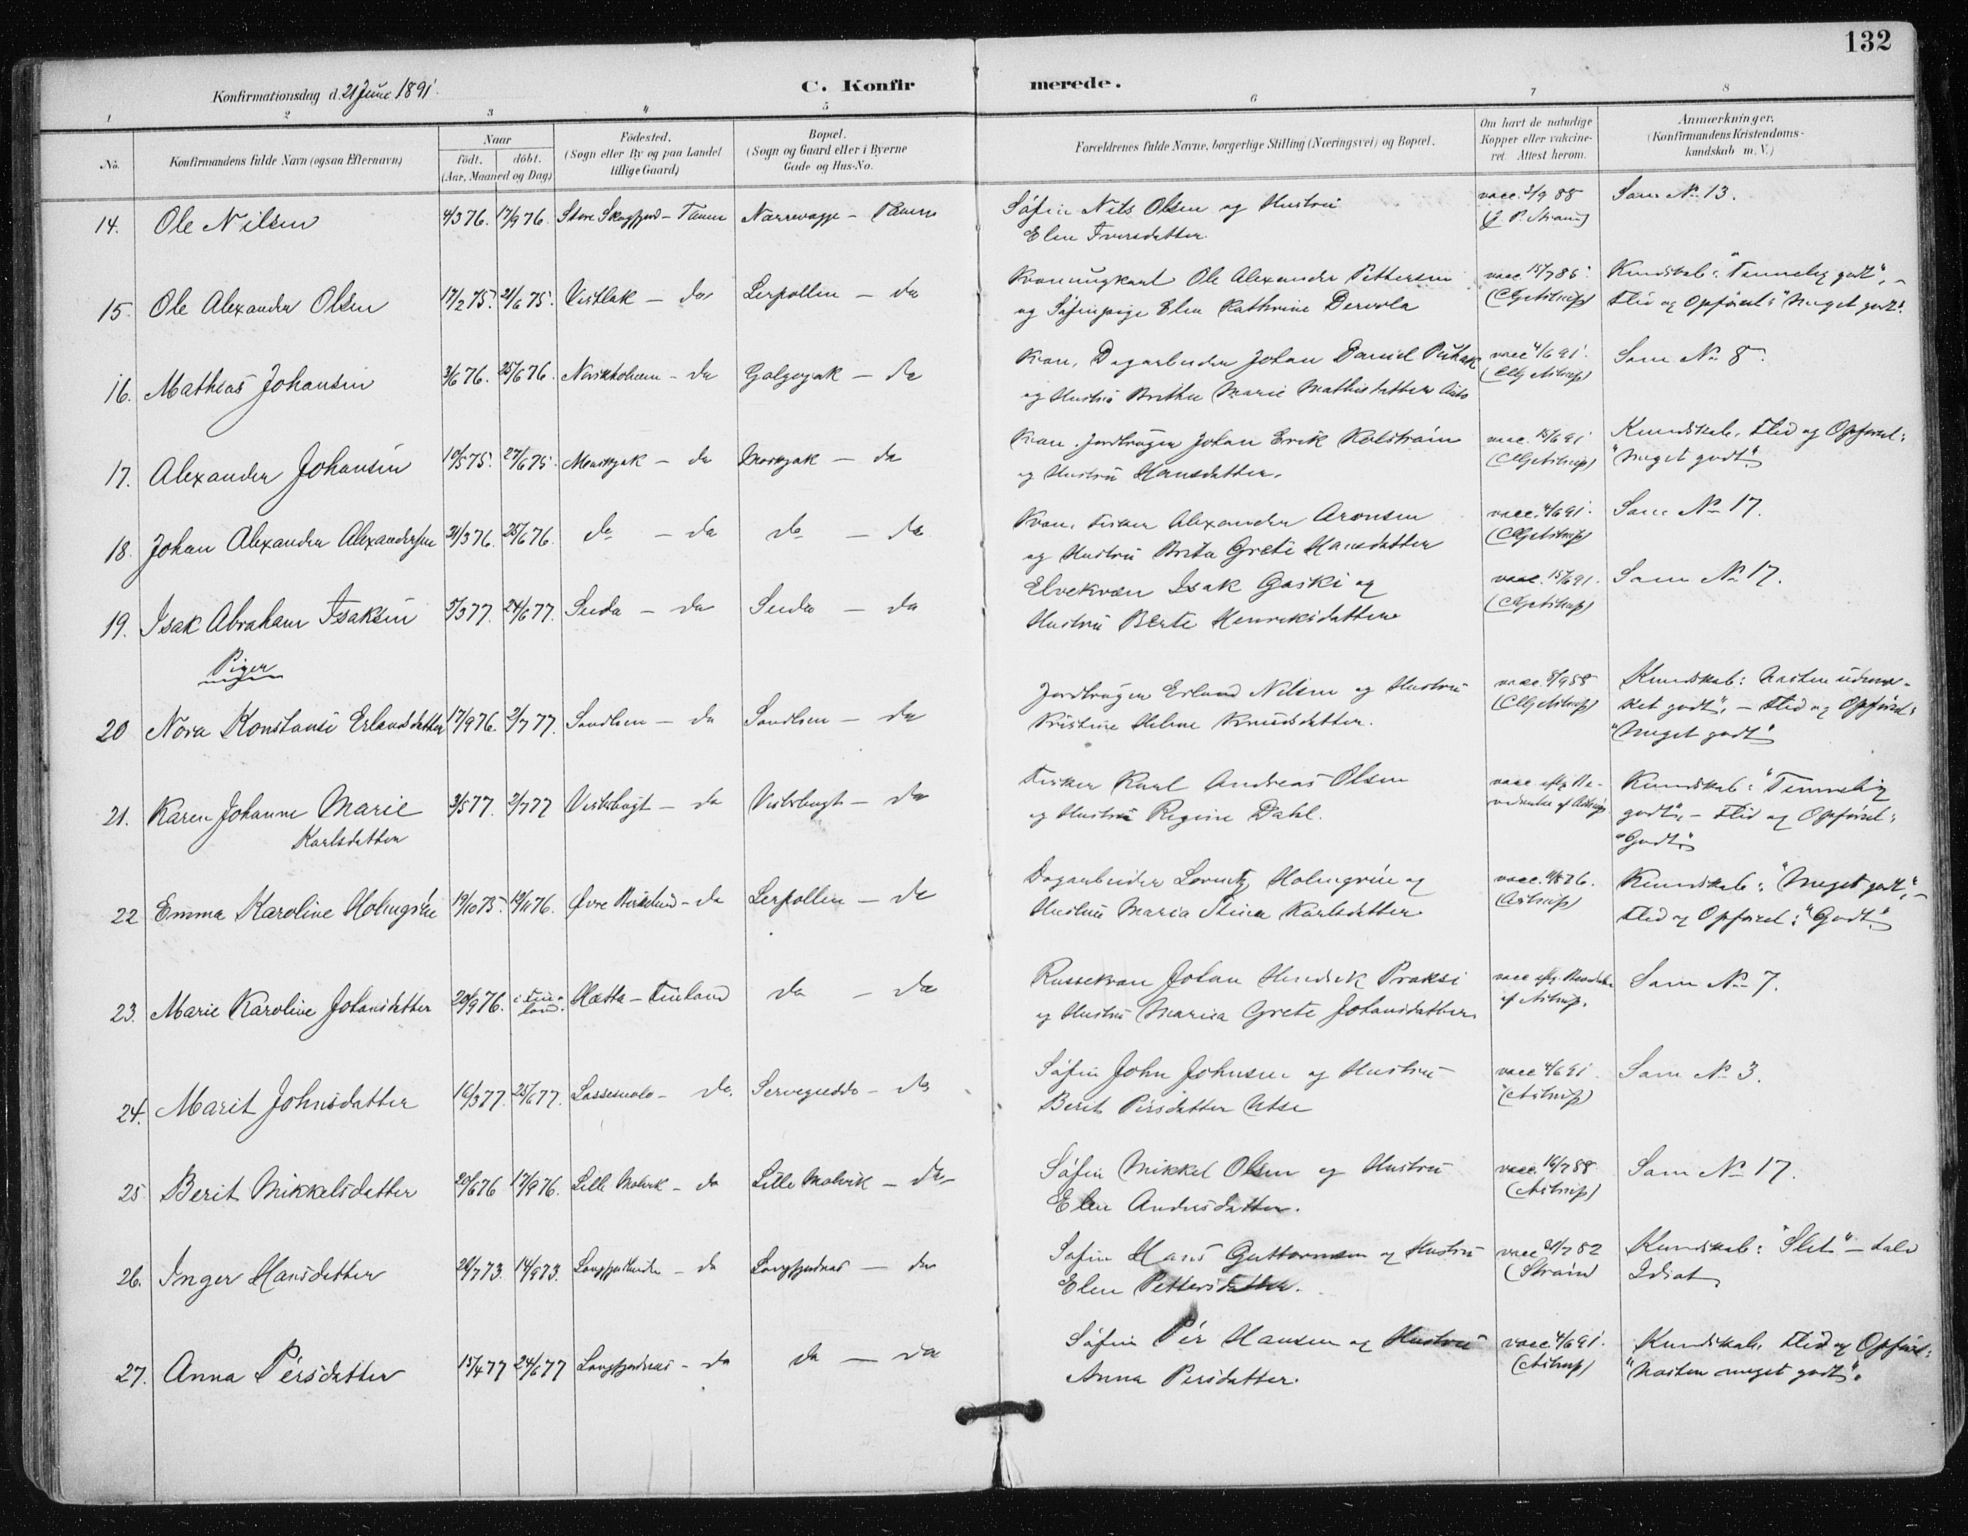 132
Konfirmationsdag d. 21 Juni 1891.
C. Konfirmerede.
1 2 3 4 5 6 7 8
No.
Konfirmandens fulde Navn (ogsaa Efternavn)
Naar
födt. döbt.
(Aar, Maaned og Dag)
Födested.
(Sogn eller By og paa Landet
tillige Gaard)
Bopæl.
(Sogn og Gaard eller i Byerne
Gade og Hus-No.
Forældrenes fulde Navne, borgerlige Stilling (Næringsvei) og Bopæl.
Om havt de naturlige
Kopper eller vakcine-
ret. Attest herom.
Anmærkninger.
(Konfirmandens Kristendoms-
kundskab m. V.)
14. Ole Nilsen 4/3 76. 17/9 76. Store Skogfjord – Tanen Narrevagge – Tanen Söfin Nils Olsen og Hustru vacc. 3/9 88 Som No 13.
Elen Iversdatter.
15. Ole Alexander Olsen 17/2 75. 21/6 75. Vistlak – do Lerpollen – do Kvænungkarl Ole Alexander Pettersen vacc. 15/7 86. Kundskab: "Temmelig godt", –
og Söfinpige Elen Kathrine Dervola (CAstrup) Flid og Opförsel: "Meget godt".
16. Mathias Johansen 3/6 76. 25/6 76. Norskholmen – do Golgojok – do Kvæn, Dagarbeider Johan Daniel vacc. 4/6 91. Som No 8.
og Hustru Brithe Marie Mathisdatter (Astrup)
17. Alexander Johansen 10/5 75. 27/6 75. Maskjok – do Maskjok – do Kvæn. Jordbruger Johan Erik Kolström vacc. 15/6 91 Kundskab, Flid og Opförsel:
og Hustru Hansdatter. (Astrup) "Meget godt".
18. Johan Alexander Alexandersen 31/3 76. 25/6 76. do – do do – do Kvæn. Fisker Alexander Aronsen vacc. 4/6 91. Som No 17.
og Hustru Brita Grete Hansdatter (Astrup)
19. Isak Abraham Isaksen 5/3 77. 24/6 77. Seida – do Seida – do Elvekvæn Isak Gaski og vacc. 15/6 91. Som No 17.
Hustru Berte Henriksdatter (Astrup)
Piger
20 Nora Konstanse Erlandsdatter 17/9 76. 2/7 77. Sandlien – do Sandlien – do Jordbruger Erland Nilsen og Hustru vacc. 8/9 88 Kundskab: Næsten udmær-
Kristine Helene Knudsdatter. (Astrup) ket godt", – Flid og Opförsel:
"Meget godt"
21. Karen Johanne Marie 3/5 77. 2/7 77 Vesterbugt – do Vesterbugt – do Fisker Karl Andreas Olsen Kundskab: "Temmelig
Karlsdatter og Hustru Regine Dahl. godt", – Flid og Opförsel:
"Godt"
22 Emma Karoline Holmgren 19/10 75. 19/11 76. Övre Birkelund – do Lerpollen – do Dagarbeider Lorentz Holmgren og Kundskab: "Meget godt", –
Hustru Maria Stina Karlsdatter (Astrup) Flid og Opförsel: "Godt"
23. Marie Karoline Johansdatter 20/9 76. i Fin- Hætta – Finland do – do Russekvæn Johan Hendrik Praksi Som No 7.
land. og Hustru Maria Grete Johansdatter. af Astrup.
24. Marit Johnsdatter 16/3 77. 25/6 77. – do. – do Söfin John Johnsen og Hustru vacc 4/6 91. Som No 3.
Berit Persdatter Utse (Astrup)
25 Berit Mikkelsdatter 20/6 76 17/9 76. Lille Molvik – do Lille Molvik – do Söfin Mikkel Olsen og Hustru vacc. 16/7 88 Som No 17.
Elen Andersdatter. (Astrup)
26. Inger Hansdatter 20/7 73. 14/9 73. – do Langfjordnæs – do Söfin Hans Guttormsen og Hustru vacc 21/7 82 Kundskab: "Slet" –
Elen Pettersdatter. (Ström) Idiot
27. Anna Persdatter 15/4 77 24/6 77 Langfjordnæs – do do – do Söfin Per Hansen og Hustru vacc 4/6 91. Kundskab, Flid og Opförsel:
Anna Persdatter. (Astrup) "Næsten meget godt".